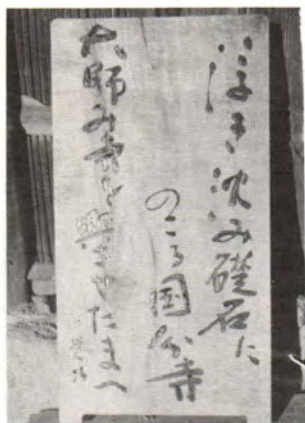 浮き沈み礎石に
のこる国分寺
大師み寺を興したまへ